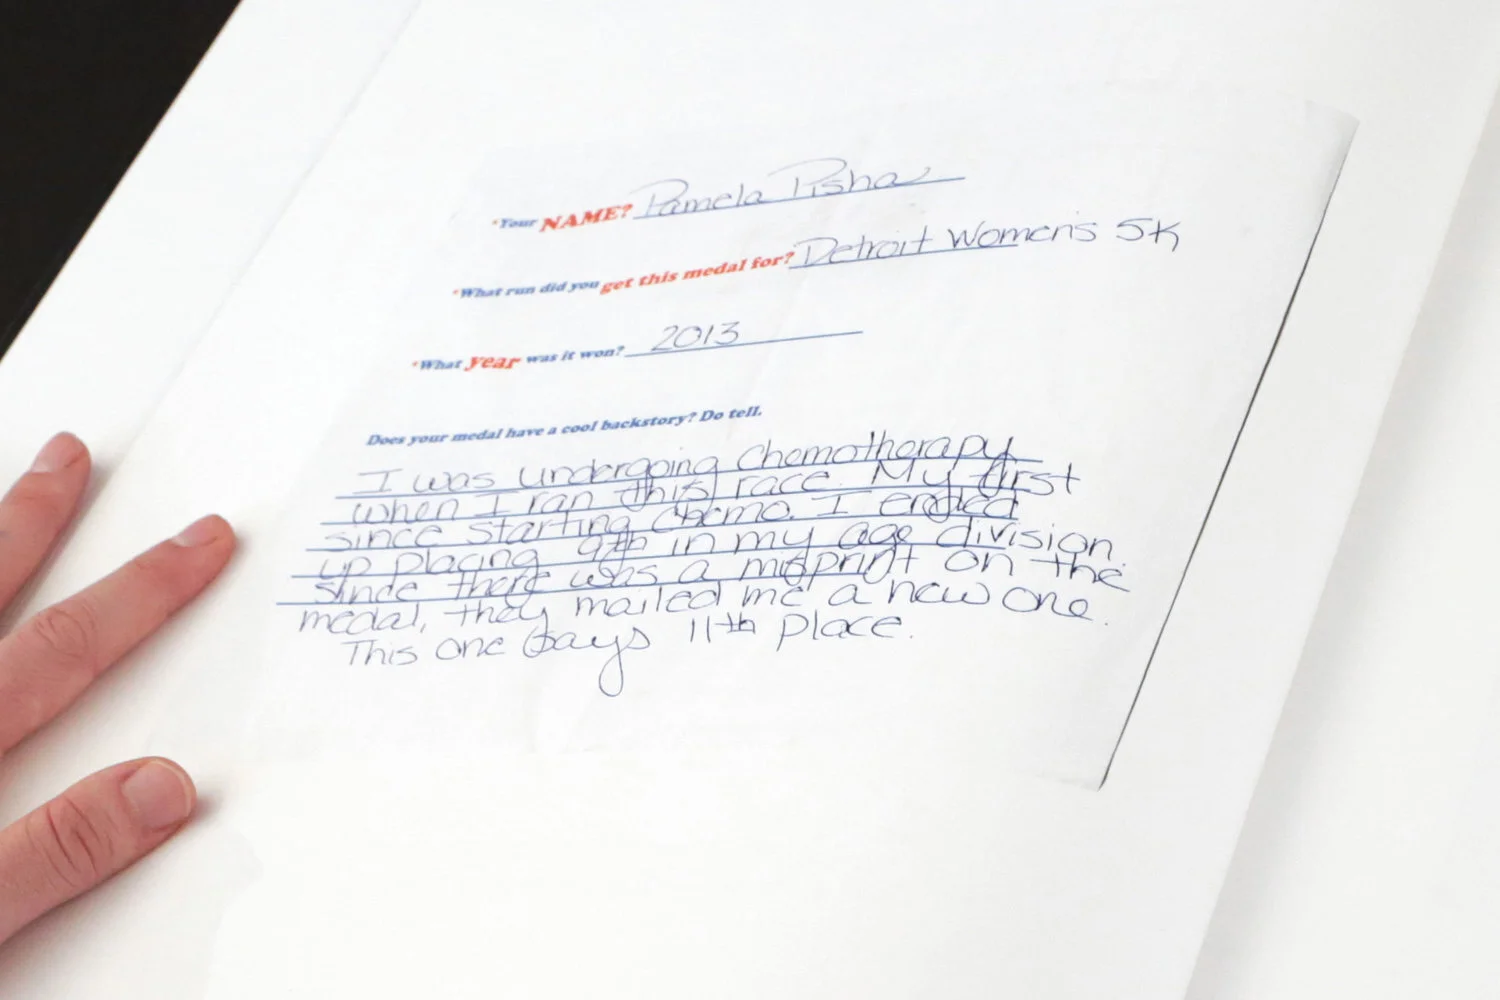 *Your NAME? Pamela Pisha
*What run did you get this medal for? Detroit Women's 5K
*What year was it won? 2013
Does your medal have a cool backstory? Do tell.
I was undergoing chemotherapy
when I ran this race. My first
since starting chemo. I ended
up placing 9th in my age division
since there was a misprint on the
medal, they mailed me a new one.
This one says 11th place.